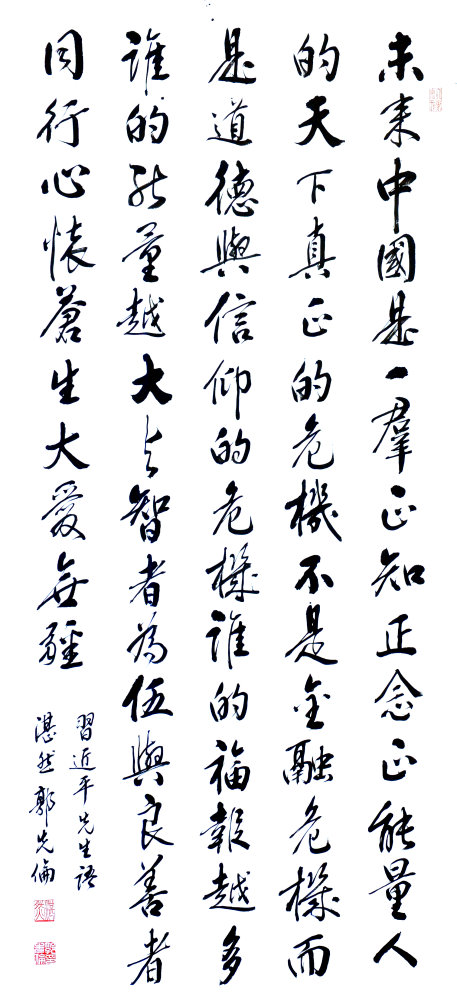 未来中國是一羣正知正念正能量人
的天下真正的危機不是金融危機而
是道德與信仰的危機誰的福報越多
誰的能量越大与智者為伍與良善者
同行心懷蒼生大愛無疆
習近平先生語
湛然郭先倫